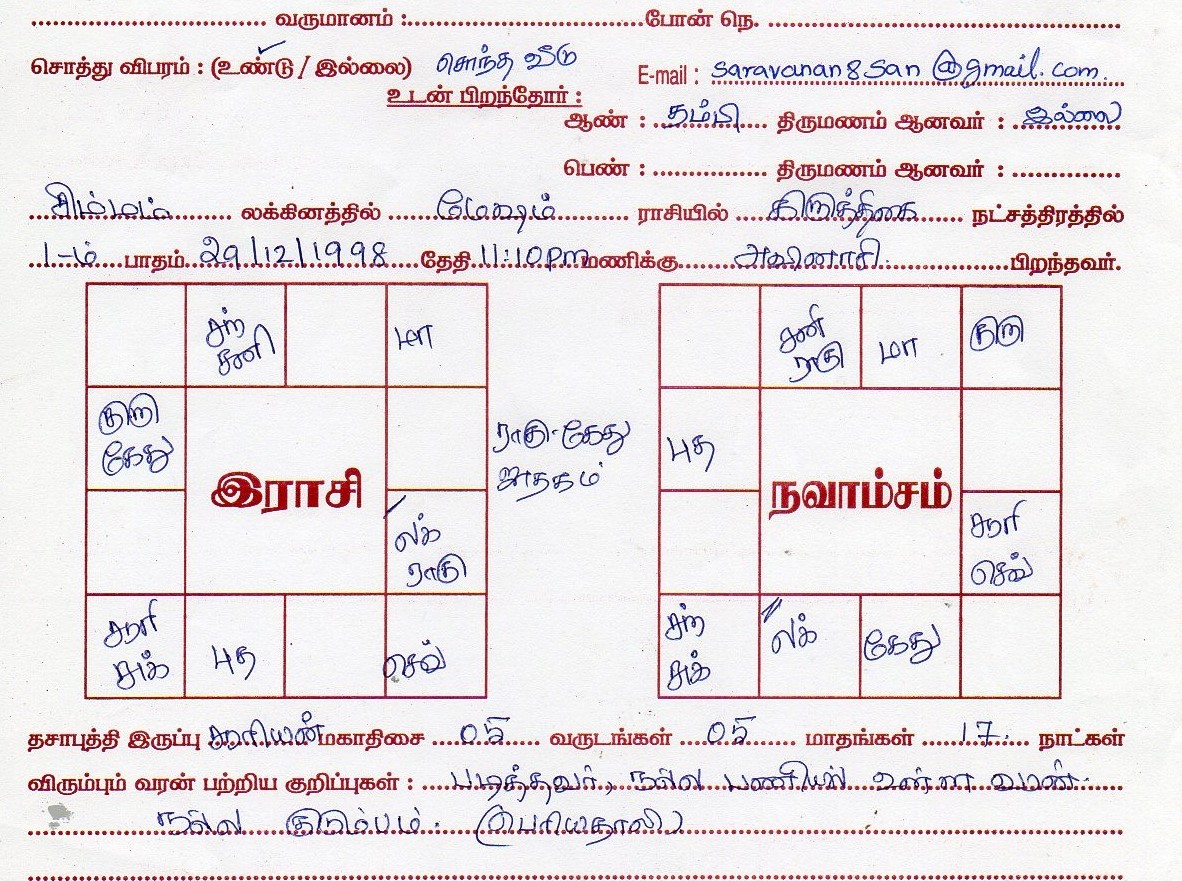 வருமானம் : போன் நெ.
சொத்து விபரம் : (உண்டு / இல்லை) சொந்த வீடு E-mail : saravanan8san@gmail.com.
உடன் பிறந்தோர் :
ஆண் : தம்பி திருமணம் ஆனவர் : இல்லை
பெண் : திருமணம் ஆனவர் :
சிம்மம் லக்கினத்தில் மேஷம் ராசியில் கிறுத்திகை நட்சத்திரத்தில்
1-ம் பாதம் 29/12/1998 தேதி 11:10pm மணிக்கு அவினாசி பிறந்தவர்.
சந் சனி
மா
குரு கேது
லக் ராகு
சூரி சுக்
புத
செவ்
இராசி
ராகு-கேது
ஜாதகம்
சனி ராகு
மா
குரு
புத
சூரி செவ்
சந் சுக்
லக்
கேது
நவாம்சம்
தசாபுத்தி இருப்பு சூரியன் மகாதிசை 05 வருடங்கள் 05 மாதங்கள் 17 நாட்கள்
விரும்பும் வரன் பற்றிய குறிப்புகள் : படித்தவர், நல்ல பணியில் உள்ள வரன்.
நல்ல குடும்பம். (பெரியதாலி)